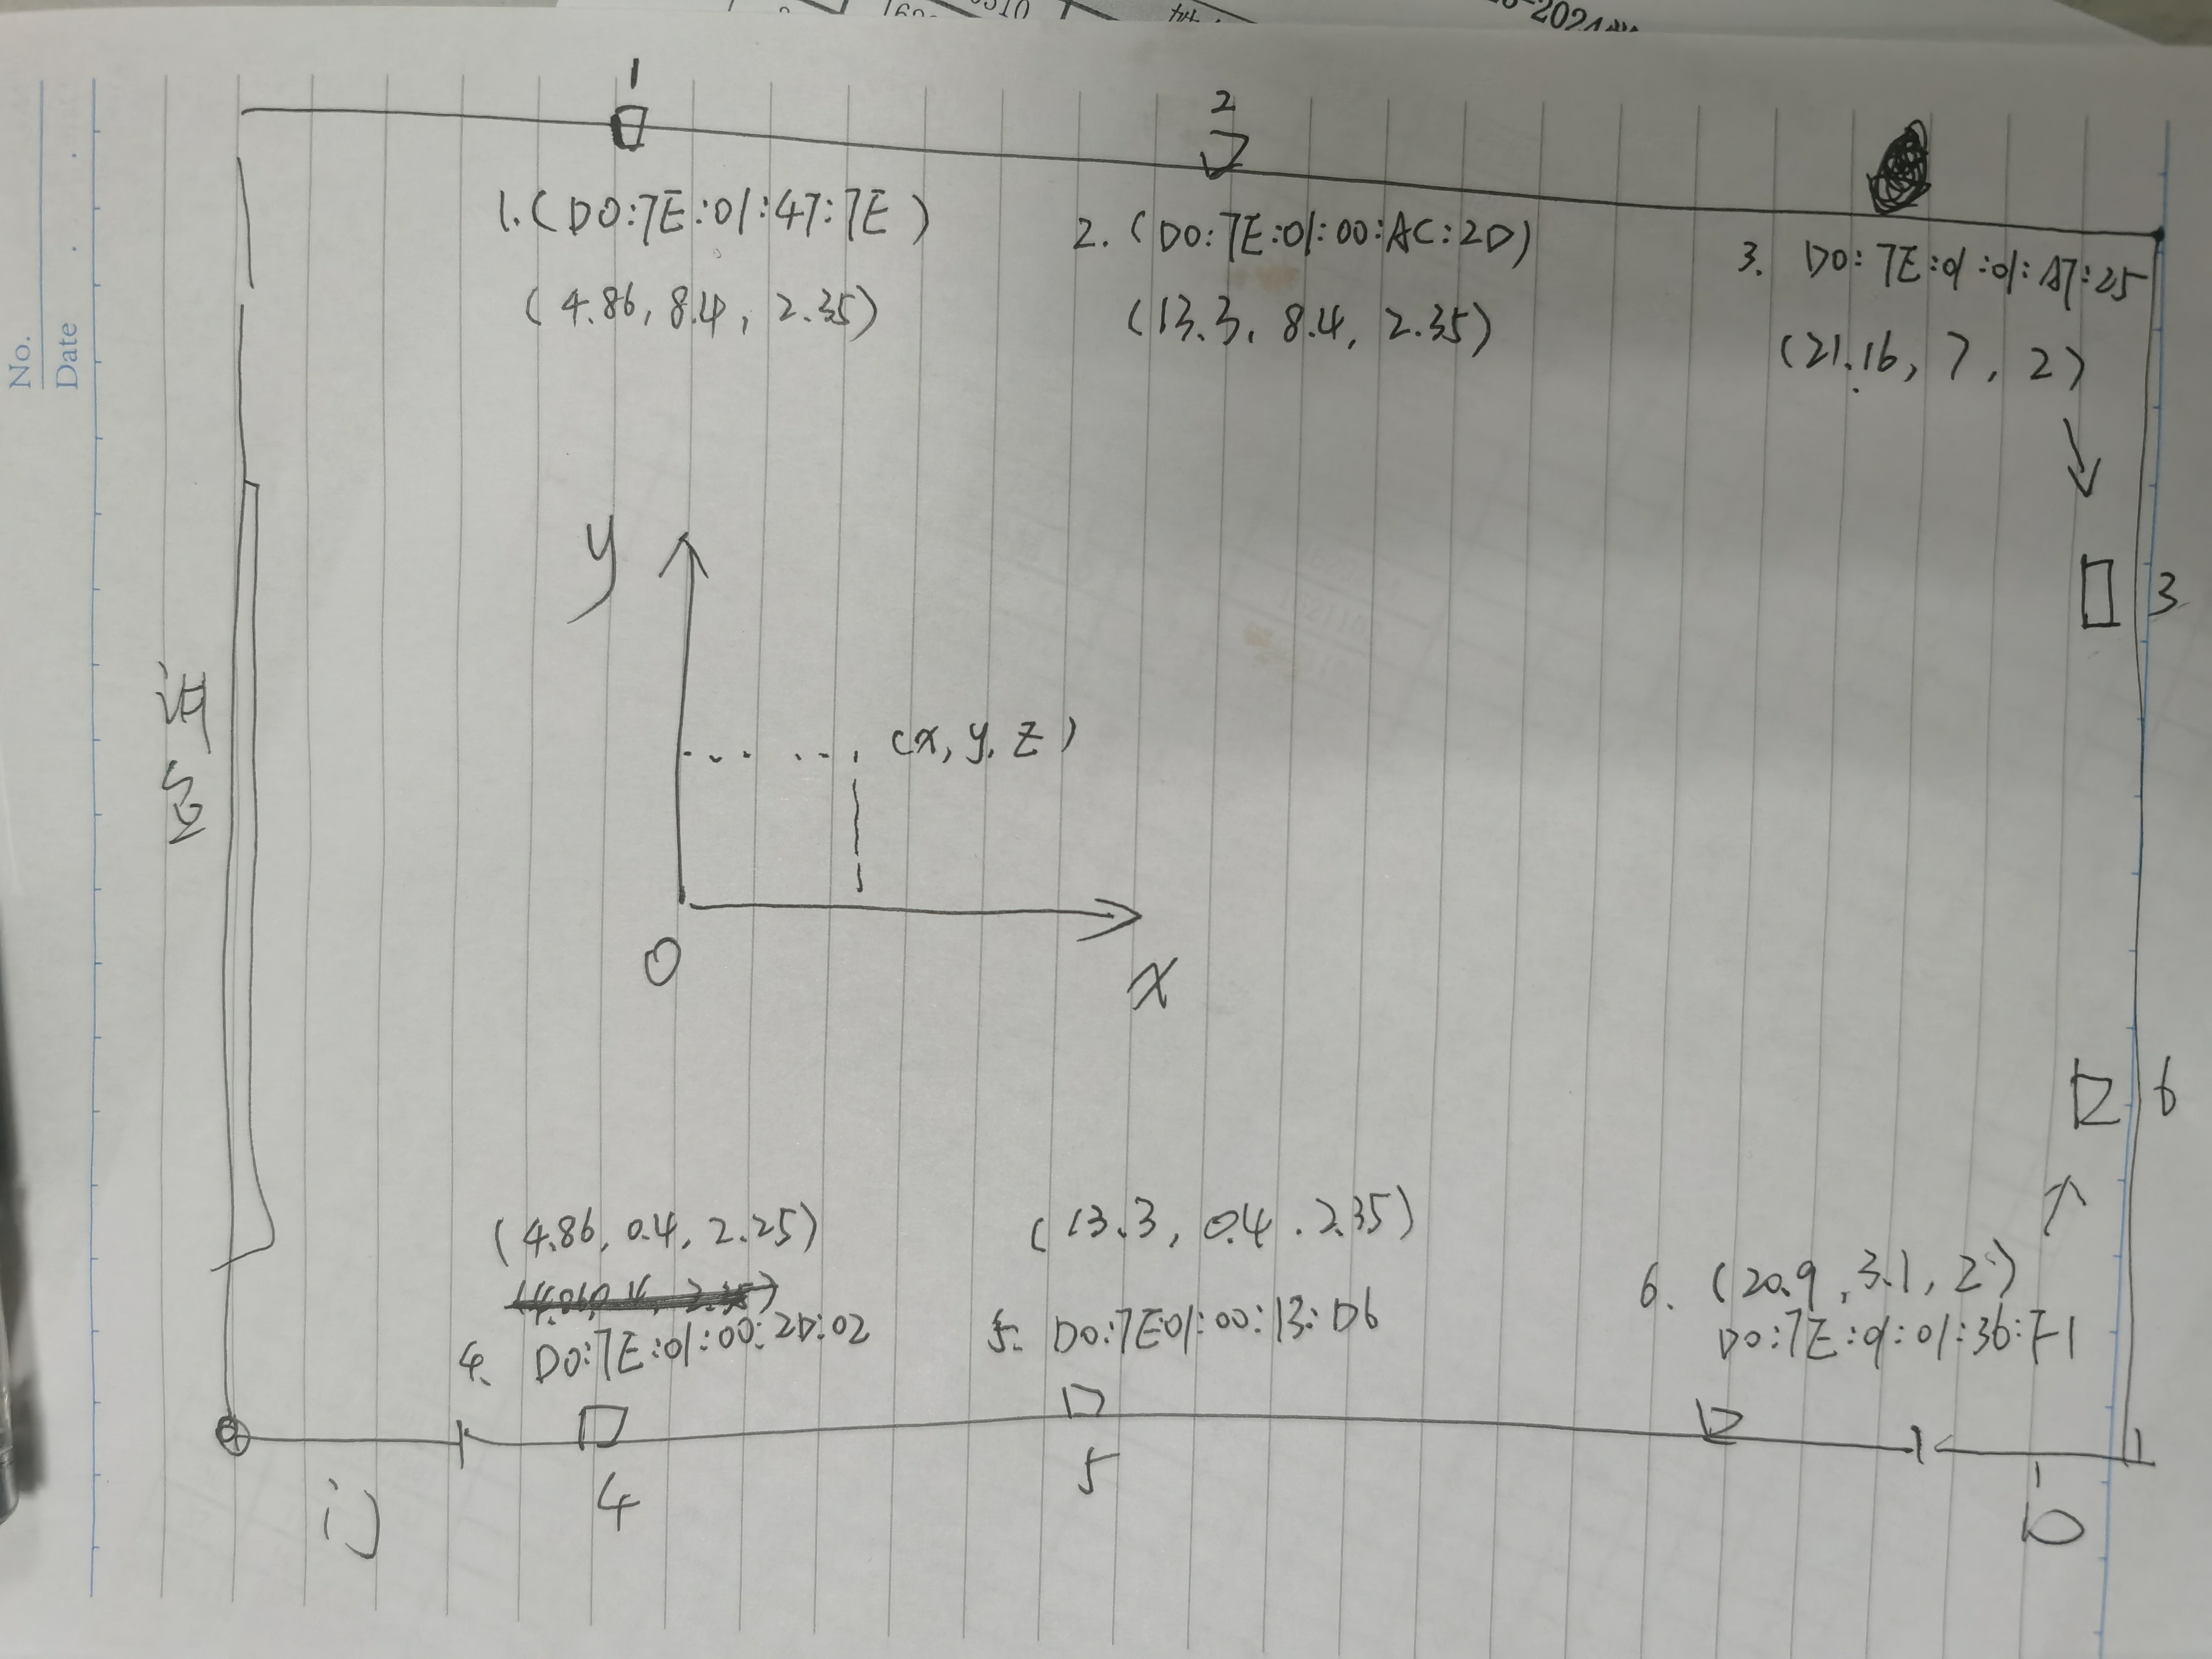 No.
Date
1
2
1. (D0:7E:01:47:7E)
(4.86, 8.4, 2.35)
2. (D0:7E:01:00:AC:2D)
(13.3, 8.4, 2.35)
3. D0:7E:01:01:A7:25
(21.16, 7, 2)
3
y
(x, y, z)
0
x
讲台
6
(4.86, 0.4, 2.25)
4. D0:7E:01:00:2D:02
(13.3, 0.4. 2.35)
5. D0:7E01:00:13:D6
6. (20.9, 3.1, 2)
D0:7E:01:01:36:F1
4
5
门